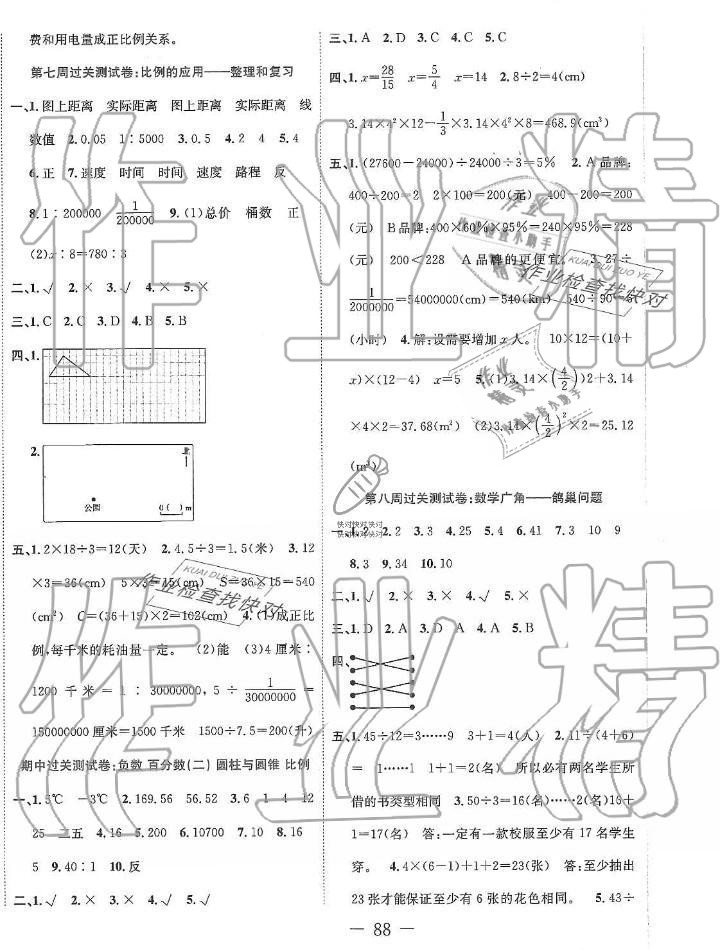 费和用电量成正比例关系。
第七周过关测试卷:比例的应用——整理和复习
一、1.图上距离 实际距离 图上距离 实际距离 线
数值 2.0.05 1∶5000 3.0.5 4.2 4 5.4
6.正 7.速度 时间 时间 速度 路程 反
8.1∶200000 1/200000 9.(1)总价 桶数 正
(2)x∶8=780∶3
二、1.√ 2.× 3.√ 4.√ 5.×
三、1.C 2.C 3.D 4.B 5.B
四、1.
2.
北
公园
0 ( ) m
五、1.2×18÷3=12(天) 2.4.5÷3=1.5(米) 3.12
×3=36(cm) 5×3=15(cm) S=36×15=540
(cm²) C=(36+15)×2=102(cm) 4.(1)成正比
例,每千米的耗油量一定。 (2)能 (3)4厘米∶
1200千米=1∶30000000,5÷1/30000000=
150000000厘米=1500千米 1500÷7.5=200(升)
期中过关测试卷:负数 百分数(二) 圆柱与圆锥 比例
一、1.5℃ -3℃ 2.169.56 56.52 3.6 1 4 12
25 二五 4.16 5.200 6.10700 7.10 8.16
5 9.40∶1 10.反
二、1.√ 2.× 3.× 4.√ 5.√
三、1.A 2.D 3.C 4.C 5.C
四、1.x=28/15 x=5/4 x=14 2.8÷2=4(cm)
3.14×4²×12-1/3×3.14×4²×8=468.9(cm³)
五、1.(27600-24000)÷24000÷3=5% 2.A品牌:
400÷200=2 2×100=200(元) 400-200=200
(元) B品牌:400×60%×95%=240×95%=228
(元) 200<228 A品牌的更便宜。 3.27÷
1/2000000=54000000(cm)=540(km) 540÷90=6
(小时) 4.解:设需要增加x人。 10×12=(10+
x)×(12-4) x=5 5.(1)3.14×(4/2)2+3.14
×4×2=37.68(m²) (2)3.14×(4/2)²×2=25.12
(m³)
第八周过关测试卷:数学广角——鸽巢问题
一、1.2 2.2 3.3 4.25 5.4 6.41 7.3 10 9
8.3 9.34 10.10
二、1.√ 2.× 3.× 4.√ 5.×
三、1.D 2.A 3.D A 4.A 5.B
四、
五、1.45÷12=3……9 3+1=4(人) 2.11÷(4+6)
=1……1 1+1=2(名) 所以必有两名学生所
借的书类型相同 3.50÷3=16(名)……2(名)16+
1=17(名) 答:一定有一款校服至少有17名学生
穿。 4.4×(6-1)+1+2=23(张) 答:至少抽出
23张才能保证至少有6张的花色相同。 5.43÷
— 88 —
作业精
作业检查找快对
KUAI DUI ZUO YE
作业检查小助手
快对快对快对快对
作业精灵